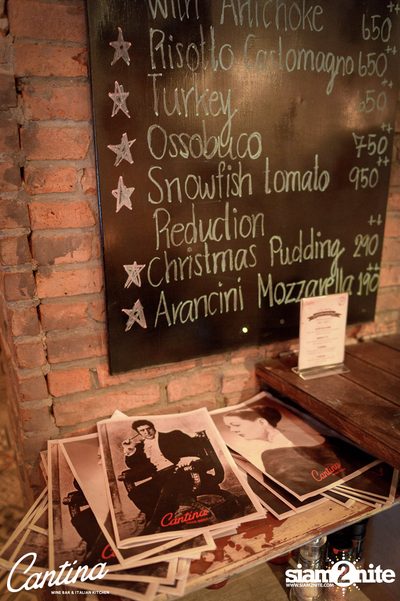 with Artichoke 650 ++
Risotto Carlomagno 650 ++
Turkey 650 ++
Ossobuco 750 ++
Snowfish tomato 950 ++
Reduction
Christmas Pudding 290 ++
Arancini Mozzarella 190 ++
Cantina
Cantina
Cantina
WINE BAR & ITALIAN KITCHEN
siam2nite
WWW.SIAM2NITE.COM